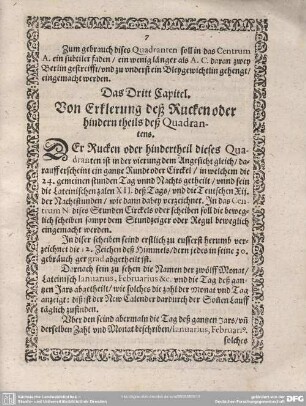 7
Zum gebrauch dises Quadranten soll in das Centrum
A. ein subtiler faden / ein wenig länger als A. C. daran zwey
Perlin gestreifft / und zu underst ein Bleygewichtlin gehengt /
eingemacht werden.
Das Dritt Capitel.
Von Erklerung deß Rucken oder
hindern theils deß Quadran-
tens.
DEr Rucken oder hindertheil dieses Qua-
dranten ist in der vierung dem Angesicht gleich / da-
rauff erscheint ein gantze Runde oder Circkel / in welchem die
24. gemeinen stunden Tag unnd Nachts getheilt / unnd sein
die Lateinischen zalen XII. deß Tags / und die Teutschen Zif.
der Nachtstunden / wie dann dabey verzeichnet. In das Cen-
trum N dises Stunden Circkels oder scheiben soll die beweg-
lich scheiben sampt dem Stundzeiger oder Regul beweglich
eingemacht werden.
In diser scheiben seind erstlich zu eusserst herumb ver-
zeichnet die 12. Zeichen deß Himmels / deren jedes in seine 30.
gebräuch ger grad abgetheilt ist.
Darnach sein zu sehen die Namen der zwölff Monat /
Lateinisch Ianuarius, Februarius &c. und die Tag deß gan-
tzen Jars abgetheilt / wie solches die zahl der Monat und Tag
anzeigt: diß ist der New Calender dardurch der Soñen Lauff
täglich zufinden.
Uber den seind abermaln die Tag deß gantzen Jars / uñ
derselben Zahl und Monat beschriben / Ianuarius, Februari⁹.
solches